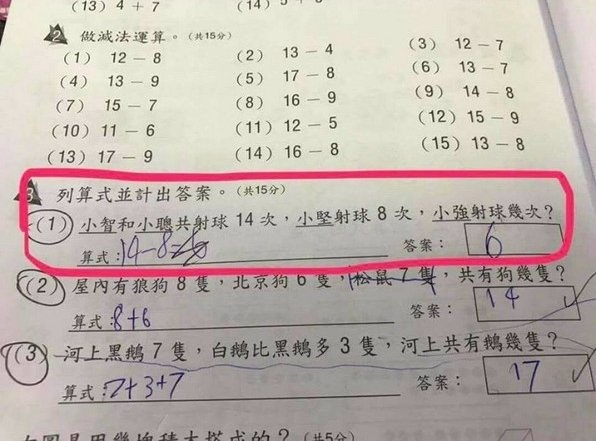 (13) 4 + 7 (14)
2 做減法運算。(共15分)
(1) 12 － 8 (2) 13 － 4 (3) 12 － 7
(4) 13 － 9 (5) 17 － 8 (6) 13 － 7
(7) 15 － 7 (8) 16 － 9 (9) 14 － 8
(10) 11 － 6 (11) 12 － 5 (12) 15 － 9
(13) 17 － 9 (14) 16 － 8 (15) 13 － 8
3 列算式並計出答案。(共15分)
(1) 小智和小聰共射球 14 次，小堅射球 8 次，小強射球幾次？
算式：14-8=6 答案： 6
(2) 屋內有狼狗 8 隻，北京狗 6 隻，松鼠 7 隻，共有狗幾隻？
算式：8+6 答案： 14
(3) 河上黑鵝 7 隻，白鵝比黑鵝多 3 隻，河上共有鵝幾隻？
算式：7+3+7 答案： 17